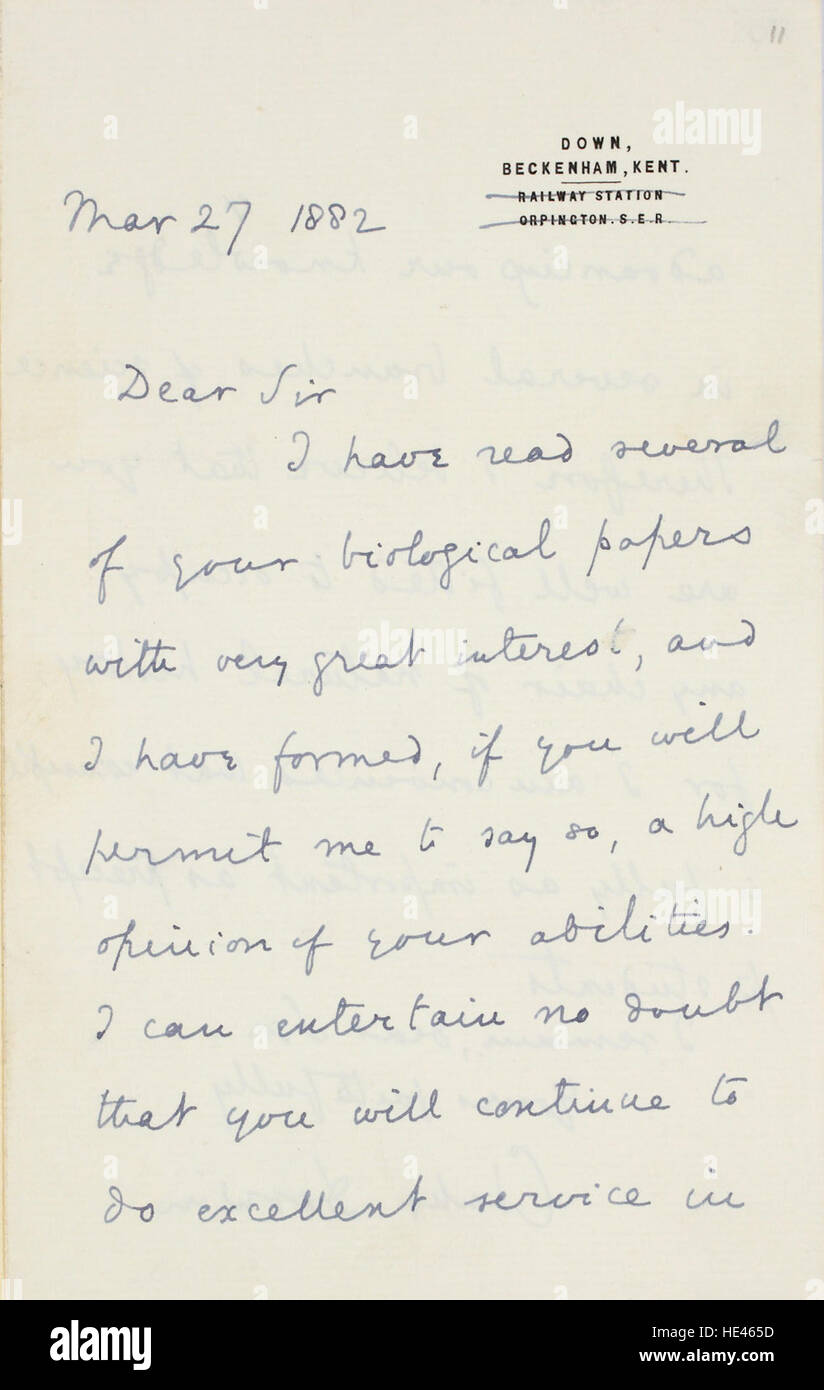 11
DOWN,
BECKENHAM, KENT.
RAILWAY STATION
ORPINGTON. S.E.R.
Mar 27 1882
Dear Sir
I have read several
of your biological papers
with very great interest, and
I have formed, if you will
permit me to say so, a high
opinion of your abilities.
I can entertain no doubt
that you will continue to
do excellent service in
alamy stock photo
HE465D
www.alamy.com